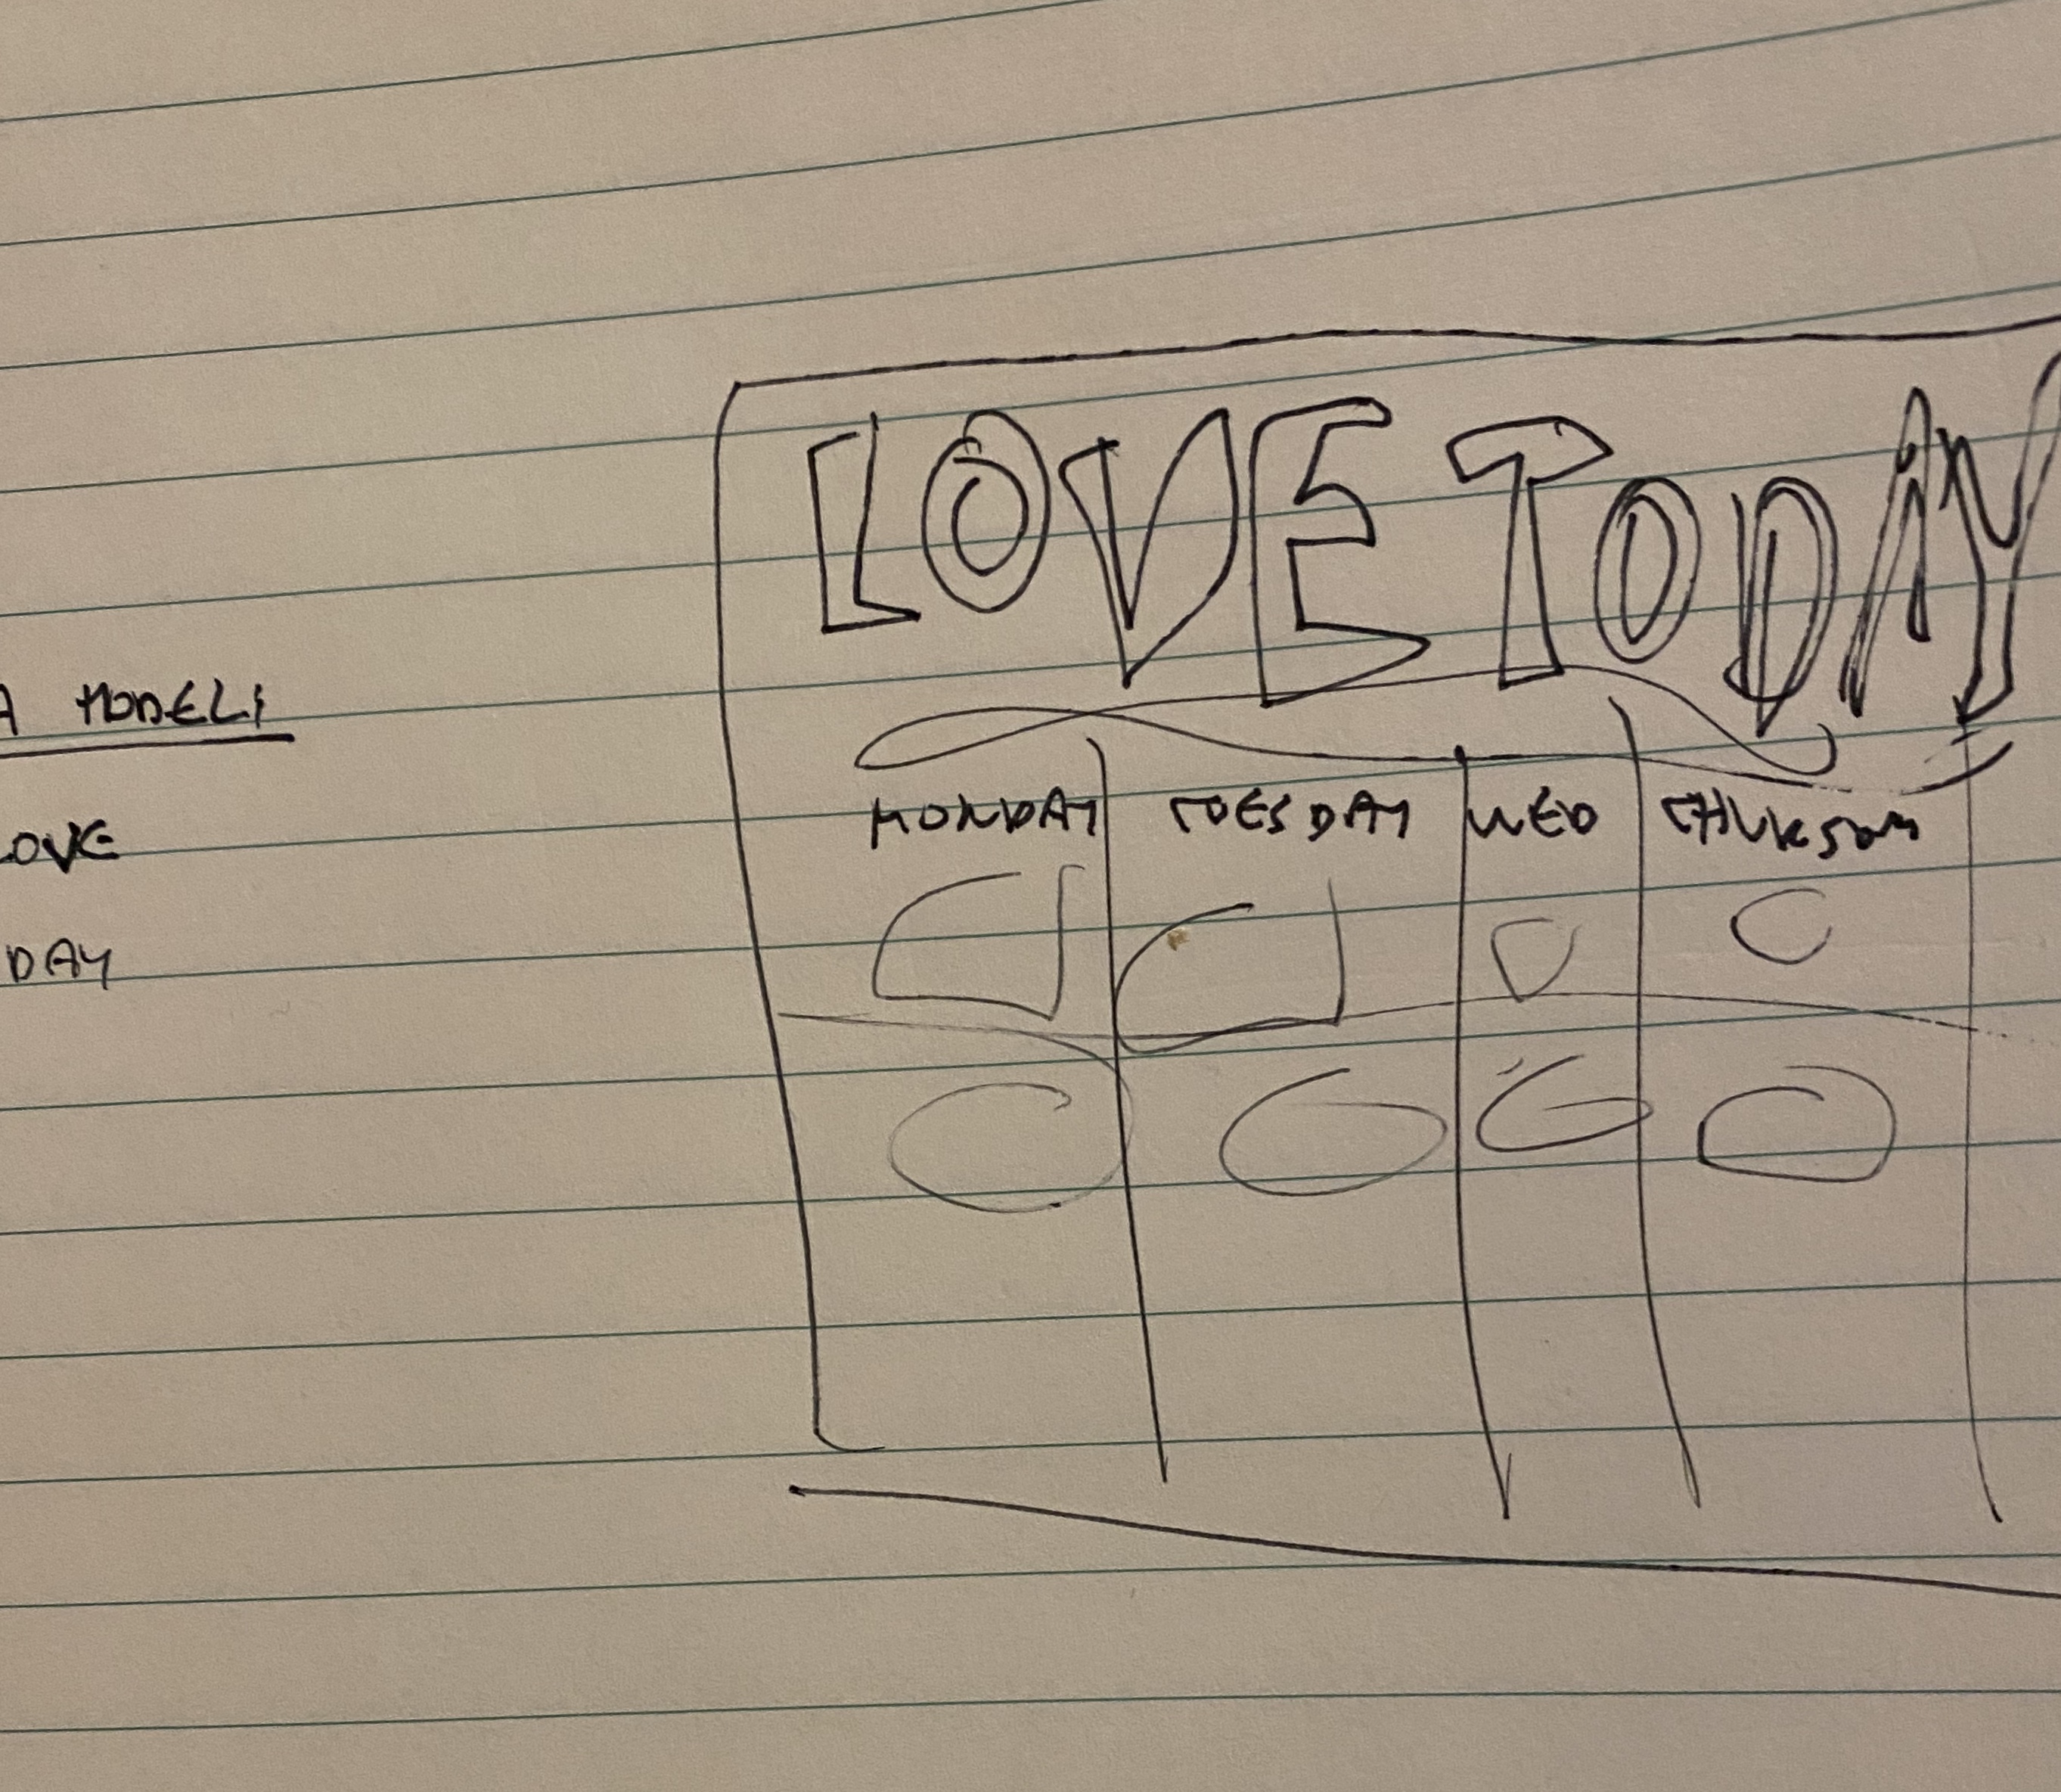 A MODELI
OVE
DAY
LOVE TODAY
MONDAY TUESDAY WED THURSDAY